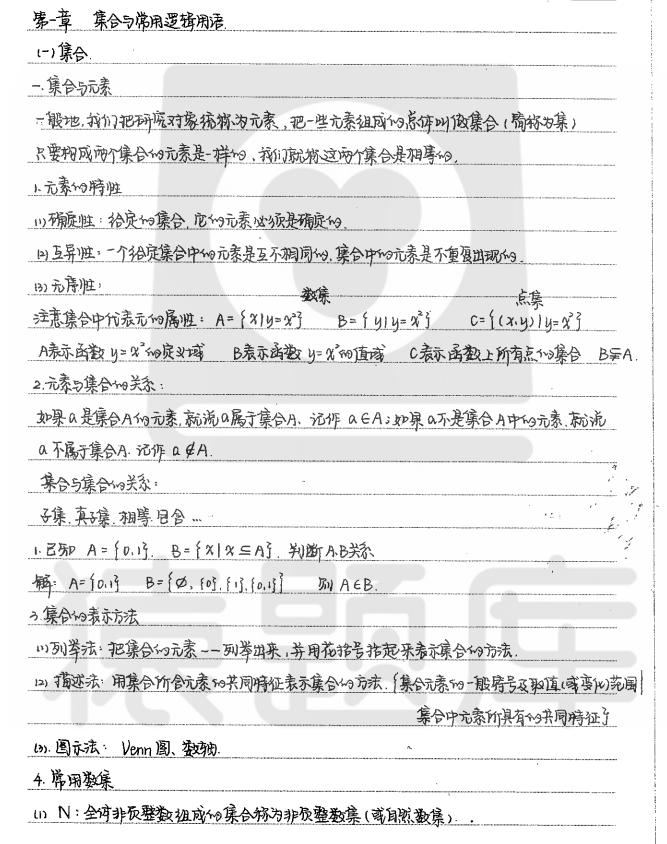 第一章 集合与常用逻辑用语
(一)集合.
一.集合与元素
一般地,我们把研究对象统称为元素,把一些元素组成的总体叫做集合(简称为集)
只要构成两个集合的元素是一样的,我们就称这两个集合是相等的.
1.元素的特性
(1)确定性:给定的集合,它的元素必须是确定的.
(2)互异性:一个给定集合中的元素是互不相同的,集合中的元素是不重复出现的.
(3)无序性:
数集 点集
注意集合中代表元的属性: A={x|y=x²} B={y|y=x²} C={(x,y)|y=x²}
A表示函数y=x²的定义域 B表示函数y=x²的值域 C表示函数上所有点的集合 B⫋A.
2.元素与集合的关系:
如果a是集合A的元素,就说a属于集合A. 记作 a∈A;如果a不是集合A中的元素,就说
a不属于集合A. 记作 a∉A.
集合与集合的关系:
子集.真子集.相等.包含…
1.已知 A={0,1}. B={x|x⊆A}. 判断A.B关系
解: A={0,1} B={∅,{0},{1},{0,1}} 则 A∈B.
3.集合的表示方法
(1)列举法:把集合的元素一一列举出来,并用花括号括起来表示集合的方法.
(2)描述法:用集合所含元素的共同特征表示集合的方法.{集合元素的一般符号及取值(或变化)范围|
集合中元素所具有的共同特征}
(3).图示法: Venn图、数轴.
4.常用数集
(1) N:全体非负整数组成的集合称为非负整数集(或自然数集).
猿题库